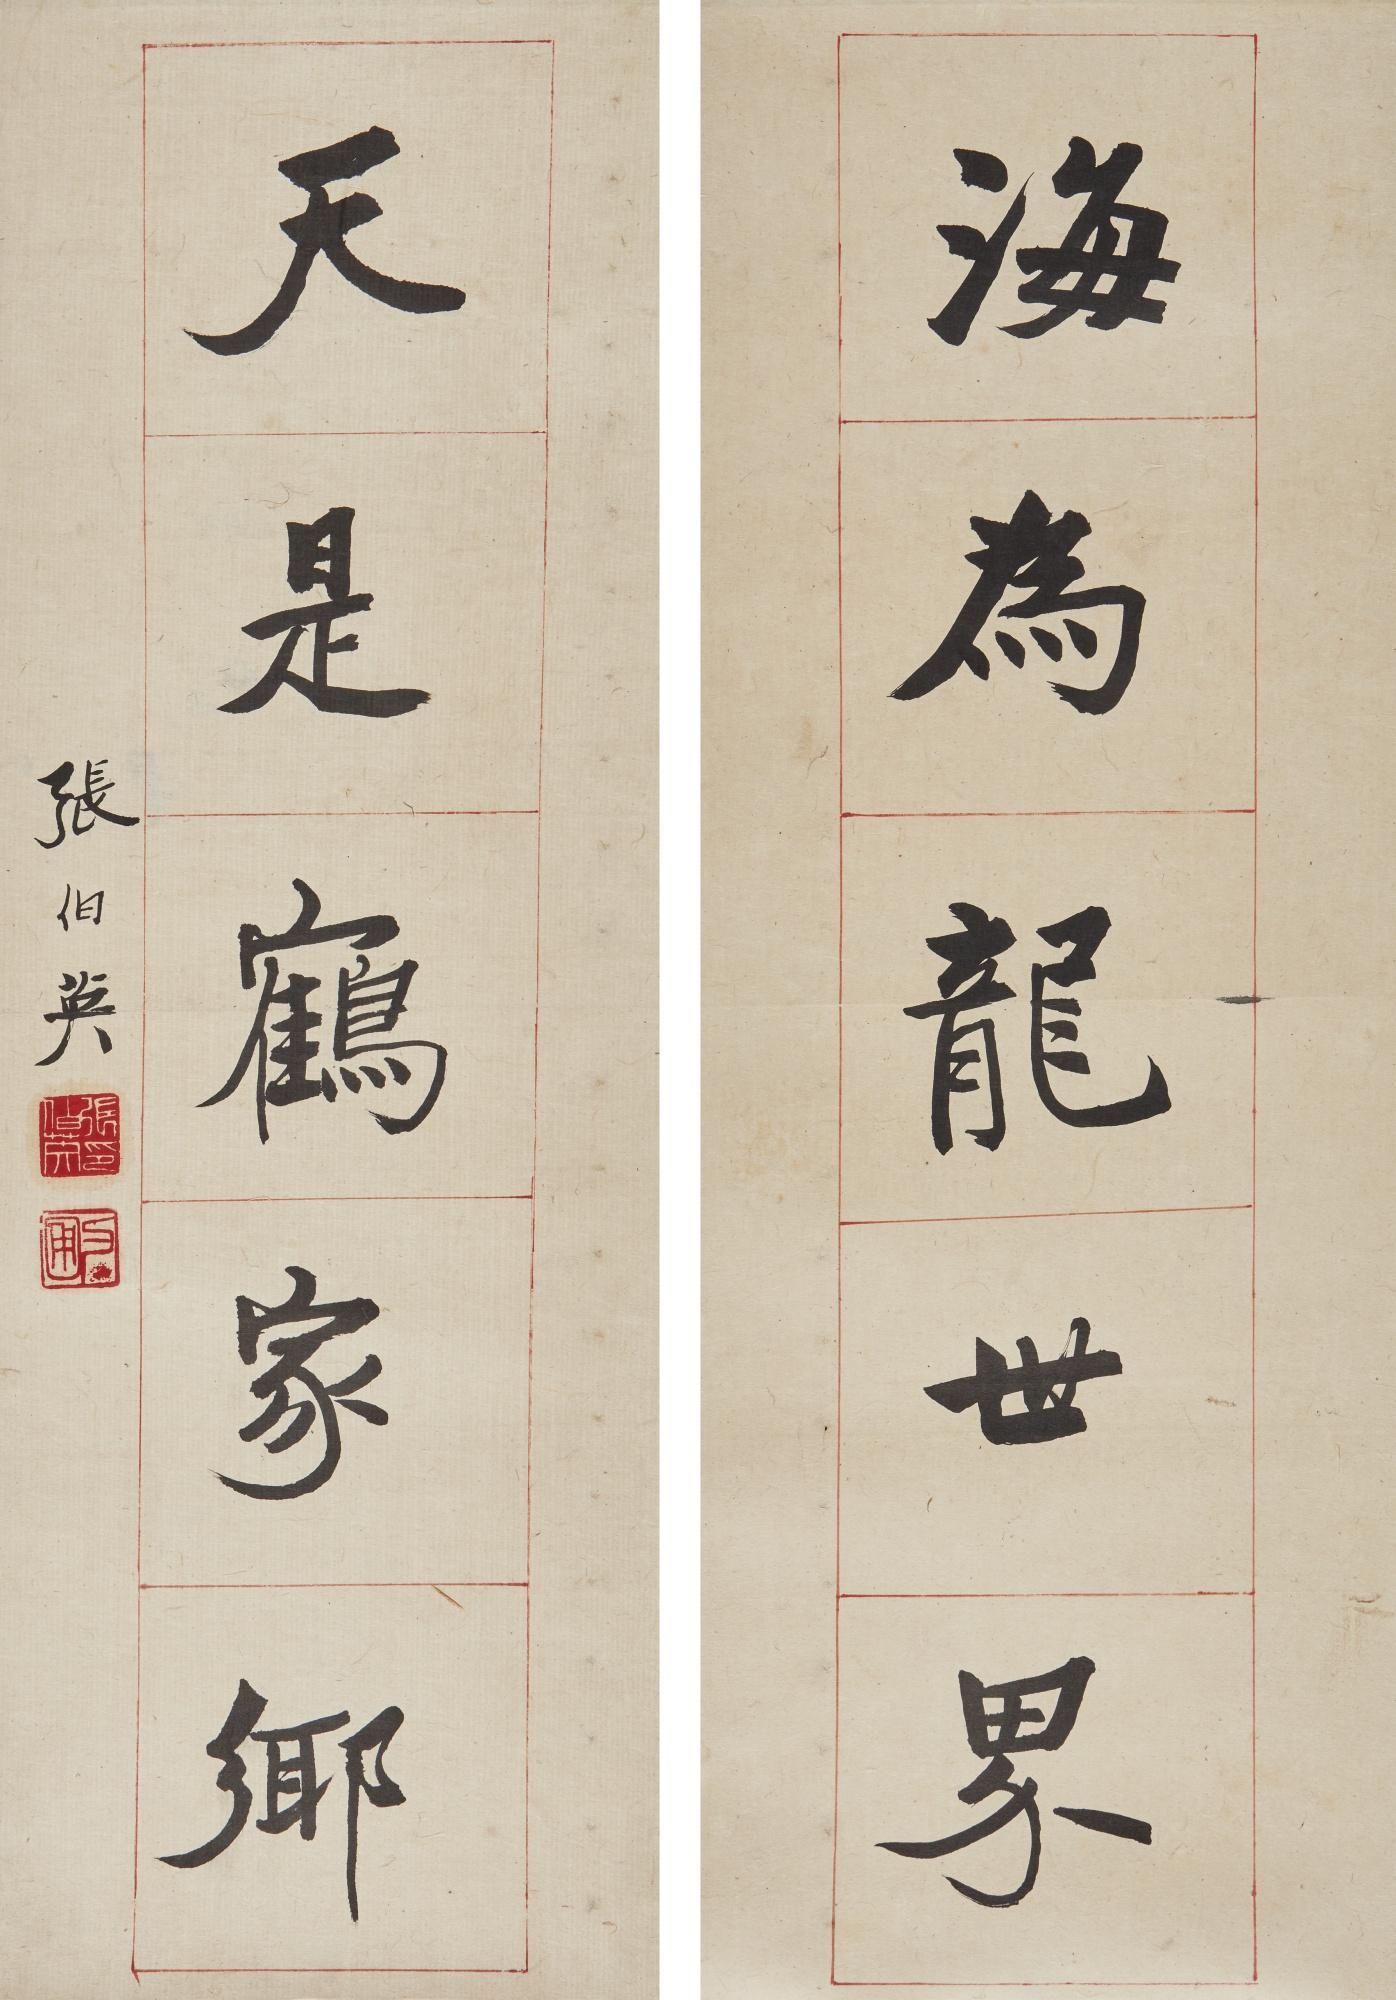 海為龍世界
天是鶴家鄉
張伯英
張伯英印